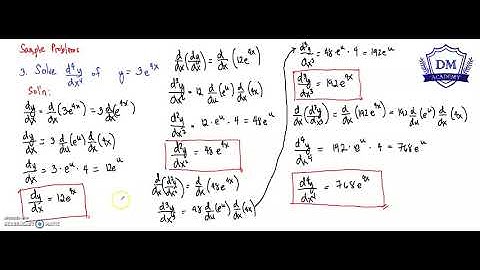 Sample Problems
3. Solve d⁴y/dx⁴ of y = 3e^4x
Sol'n:
dy/dx = d/dx (3e^4x) = 3 d/dx (e^4x)
dy/dx = 3 d/du (e^u) d/dx (4x)
dy/dx = 3 · e^u · 4 = 12e^u
dy/dx = 12e^4x
d/dx (dy/dx) = d/dx (12e^4x)
d²y/dx² = 12 d/du (e^u) d/dx (4x)
d²y/dx² = 12 · e^u · 4 = 48e^u
d²y/dx² = 48e^4x
d/dx (d²y/dx²) = d/dx (48e^4x)
d³y/dx³ = 48 d/du (e^u) d/dx (4x)
d³y/dx³ = 48 · e^u · 4 = 192e^u
d³y/dx³ = 192e^4x
d/dx (d³y/dx³) = d/dx (192e^4x) = 192 d/du (e^u) d/dx (4x)
d⁴y/dx⁴ = 192 · e^u · 4 = 768e^u
d⁴y/dx⁴ = 768e^4x
DM
ACADEMY